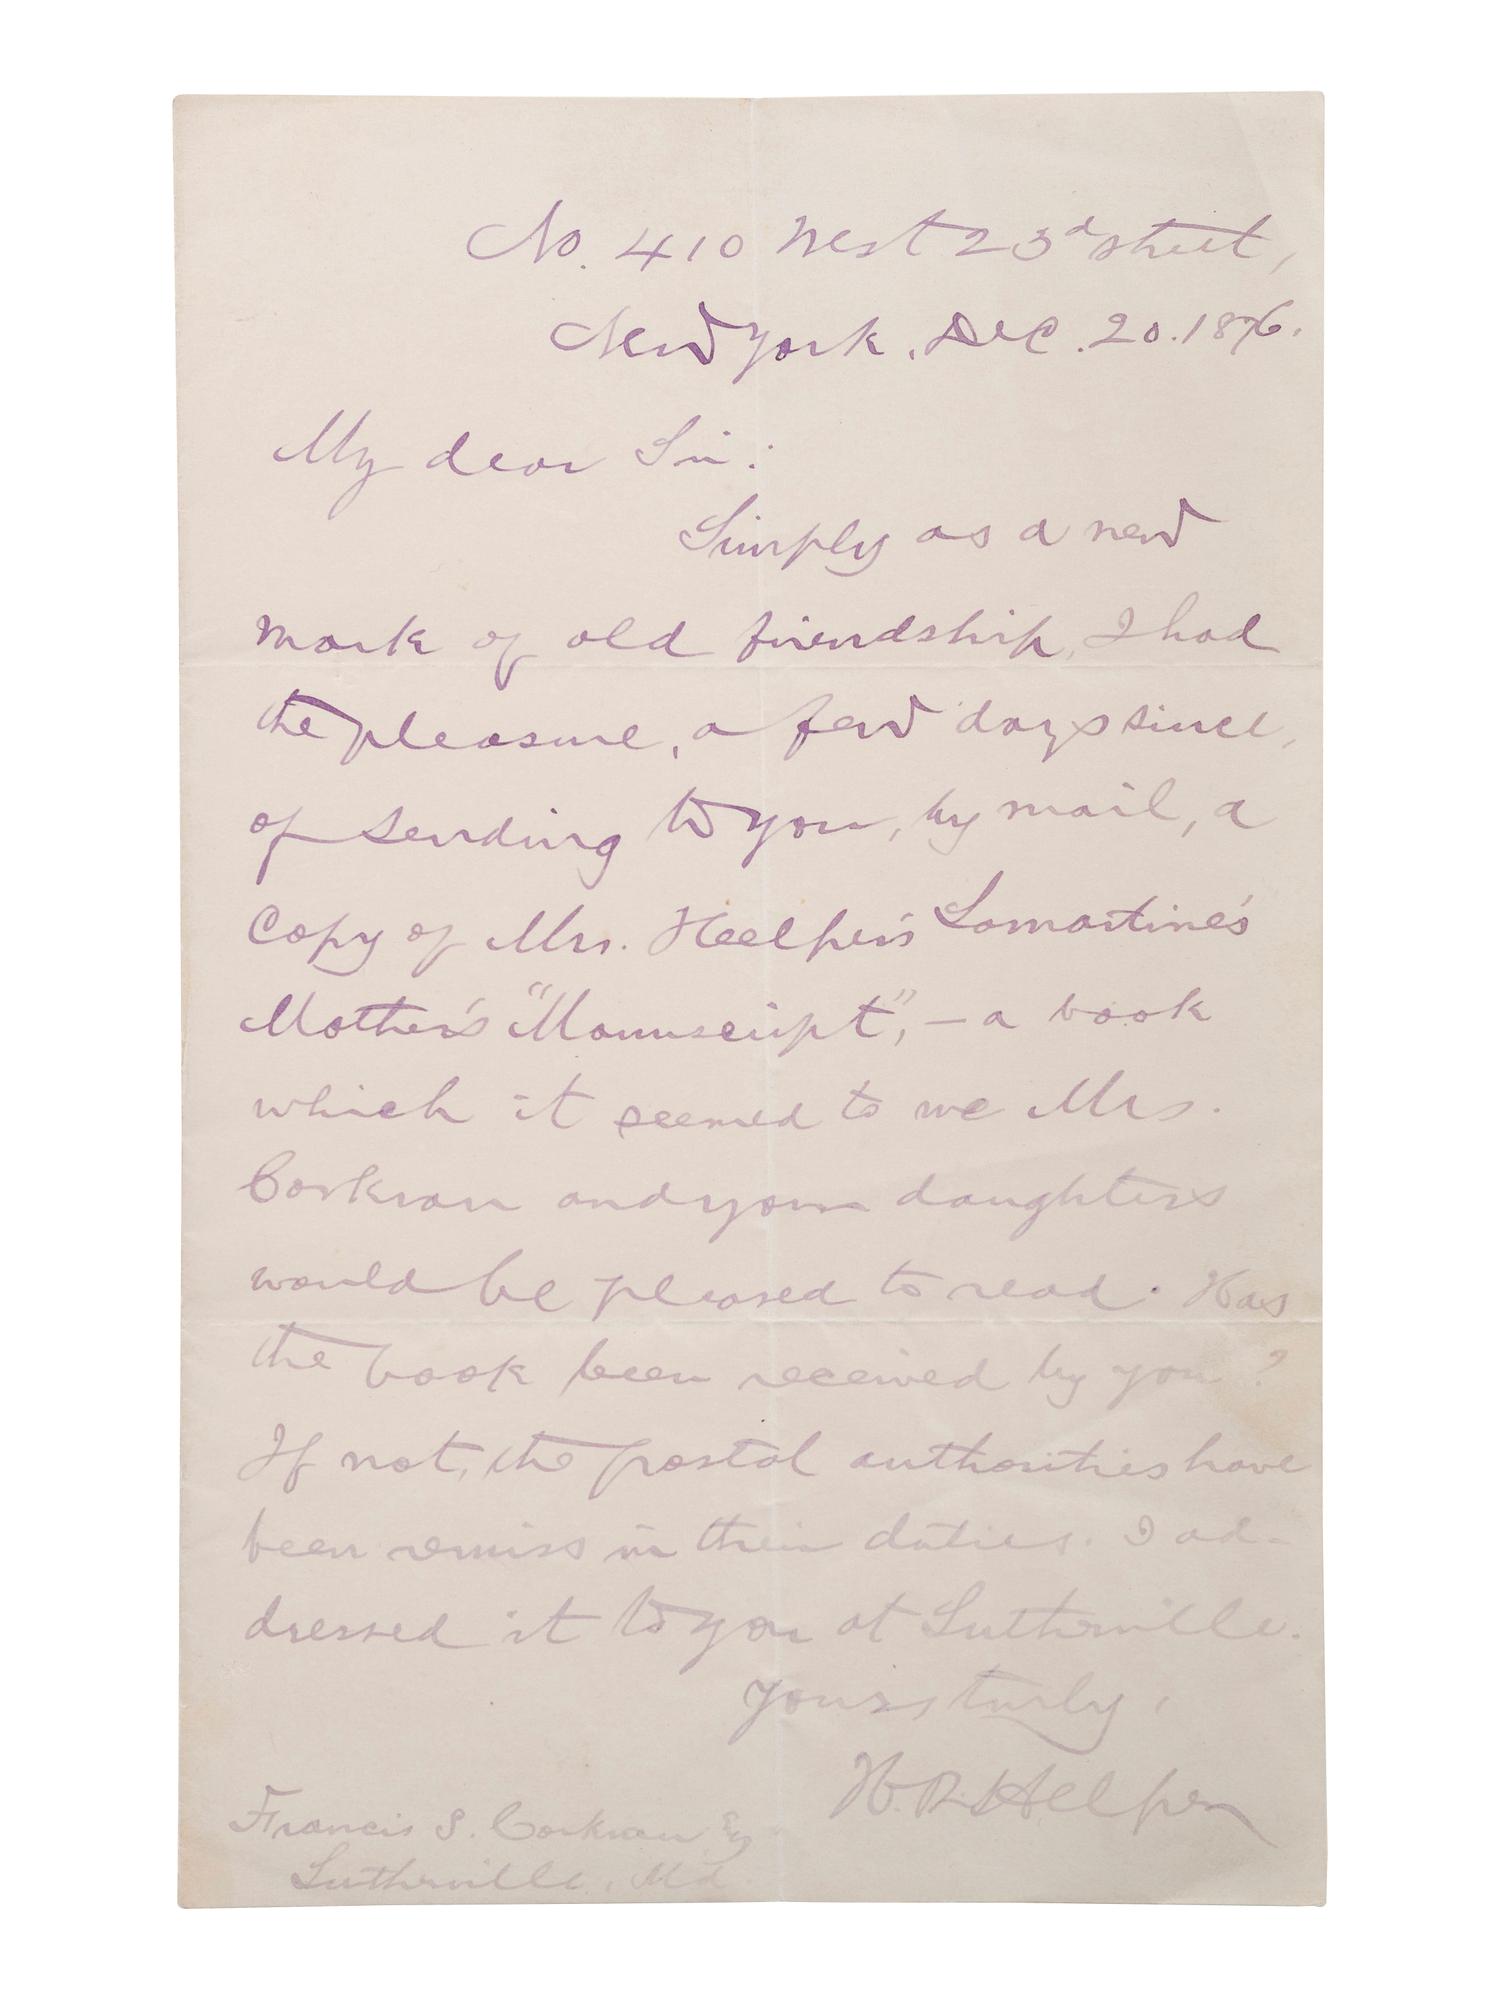 No. 410 West 23d street,
New York, Dec. 20. 1876.
My dear Sir:
Simply as a new
mark of old friendship, I had
the pleasure, a few days since,
of sending to you, by mail, a
copy of Mrs. Helper's Lamartine's
Mother's "Manuscript", — a book
which it seemed to me Mrs.
Corkran and your daughters
would be pleased to read. Has
the book been received by you?
If not, the postal authorities have
been remiss in their duties. I ad-
dressed it to you at Lutherville.
Yours truly,
H. R. Helper
Francis S. Corkran Esq
Lutherville, Md.